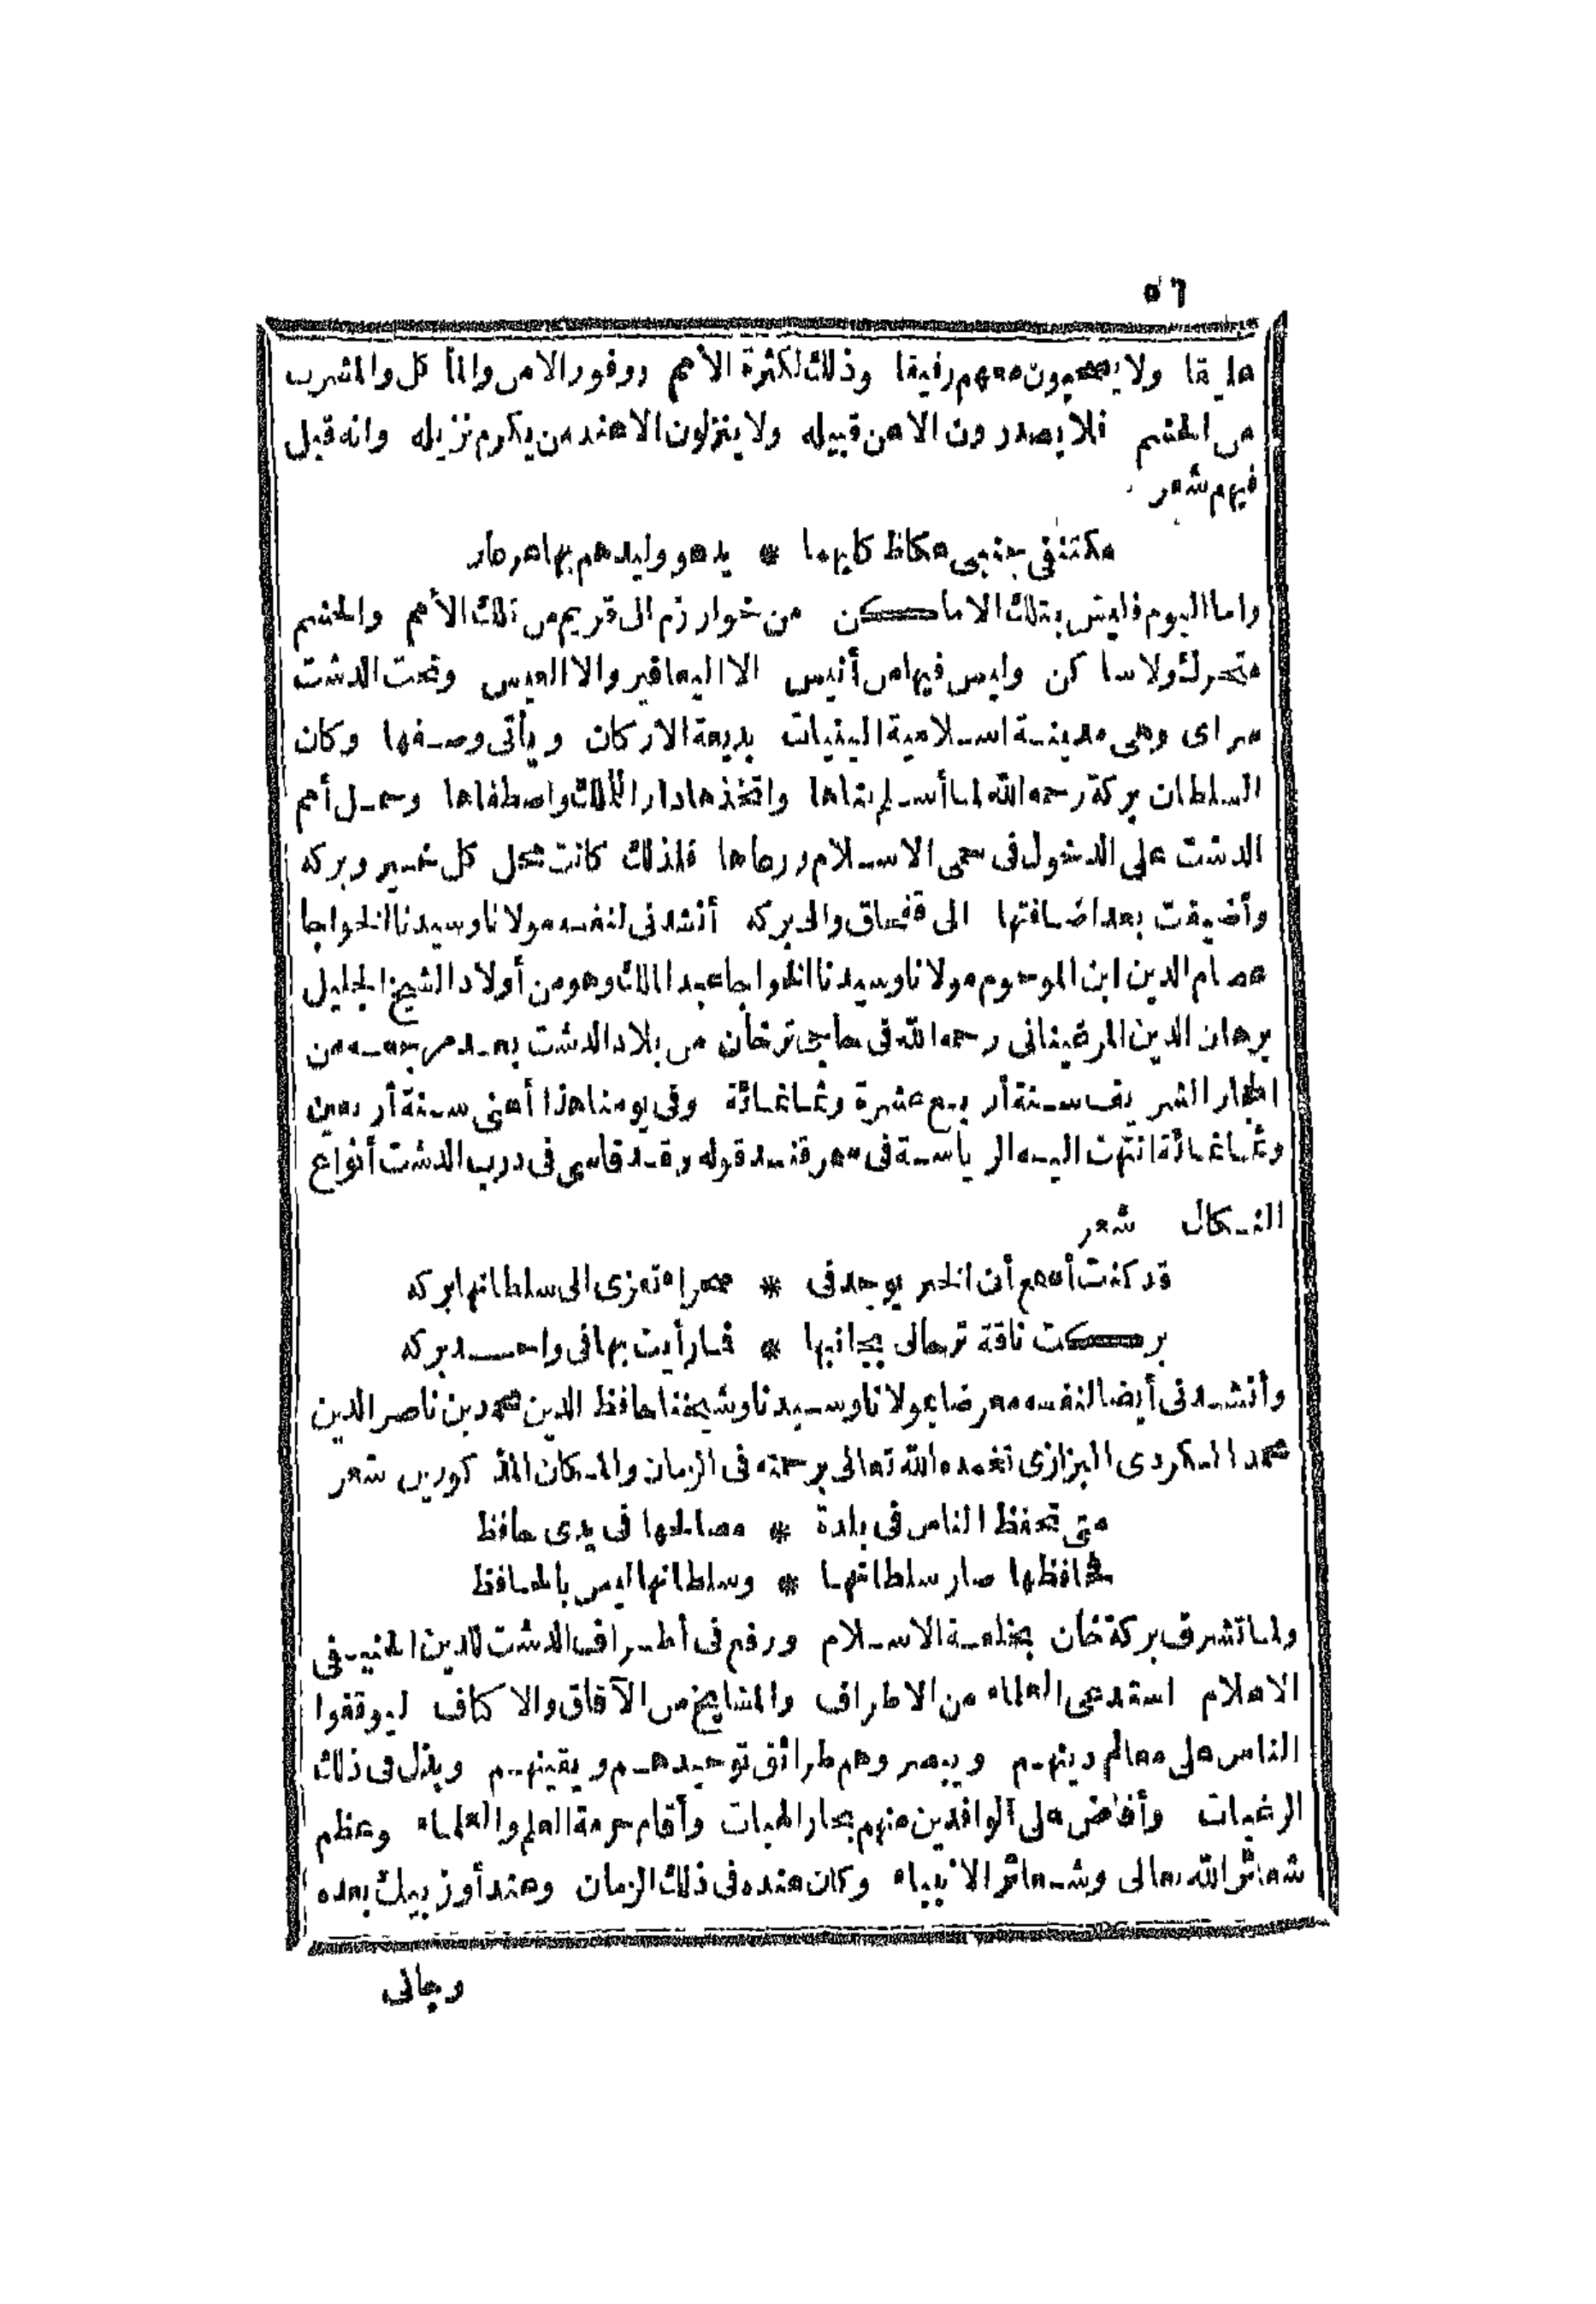 ٥٦
عليقا ولا يصحبون معهم رفيقا وذلك لكثرة الأمم ووفور الامن والمأ كل والمشرب
من الحشم فلا يصدرون الا عن قبيله ولا ينزلون الا عند من يكرم نزيله وانه قيل
فيهم شعر
مكتنفي جنبي عكاظ كليهما * يدعو وليدهم بها عرعار
واما اليوم فليس بتلك الاماكن من خوارزم الى قريم من تلك الأمم والحشم
متحرك ولا ساكن وليس فيها من أنيس الا اليعافير والا العيس وتحت الدشت
سراى وهى مدينة اسلامية البنيات بديعة الاركان ويأتى وصفها وكان
السلطان بركة رحمه الله لما أسلم بناها واتخذها دار الملك واصطفاها وحمل أمم
الدشت على الدخول فى حمى الاسلام ورعاها فلذلك كانت محل كل خير وبركه
وأضيفت بعد اضافتها الى قفجاق والى بركه أنشدنى لنفسه مولانا وسيدنا الخواجا
عصام الدين ابن المرحوم مولانا وسيدنا الخواجا عبد الملك وهو من أولاد الشيخ الجليل
برهان الدين المرغينانى رحمه الله فى حاجى ترخان من بلاد الدشت بعد مرجعه من
الحجاز الشريف سنة أربع عشرة وثمانمائة وفى يومنا هذا أعنى سنة أربعين
وثمانمائة انتهت اليه الرياسة فى سمرقند قوله وقد قاسى فى درب الدشت أنواع
النكال شعر
قد كنت أسمع أن الخير يوجد فى * صحراء تعزى الى سلطانها بركه
بركت ناقة ترحالى بجانبها * فما رأيت بها فى واحد بركه
وأنشدنى أيضا لنفسه معرضا بمولانا وسيدنا وشيخنا حافظ الدين محمد بن ناصر الدين
محمد الكردى البزازى تغمده الله تعالى برحمته فى الزمان والمكان المذكورين شعر
متى تحفظ الناس فى بلدة * مصالحها فى يدى حافظ
فحافظها صار سلطانها * وسلطانها ليس بالحافظ
ولما تشرف بركة خان بخلعة الاسلام ورفع فى أطراف الدشت للدين الحنيفى
الاعلام استدعى العلماء من الاطراف والمشايخ من الآفاق والاكناف ليوقفوا
الناس على معالم دينهم ويبصروهم طرائق توحيدهم ويقينهم وبذل فى ذلك
الرغبات وأفاض على الوافدين منهم بحار الهبات وأقام حرمة العلم والعلماء وعظم
شعائر الله تعالى وشعائر الانبياء وكان عنده فى ذلك الزمان وعند أوزبيك بعده
وجانى